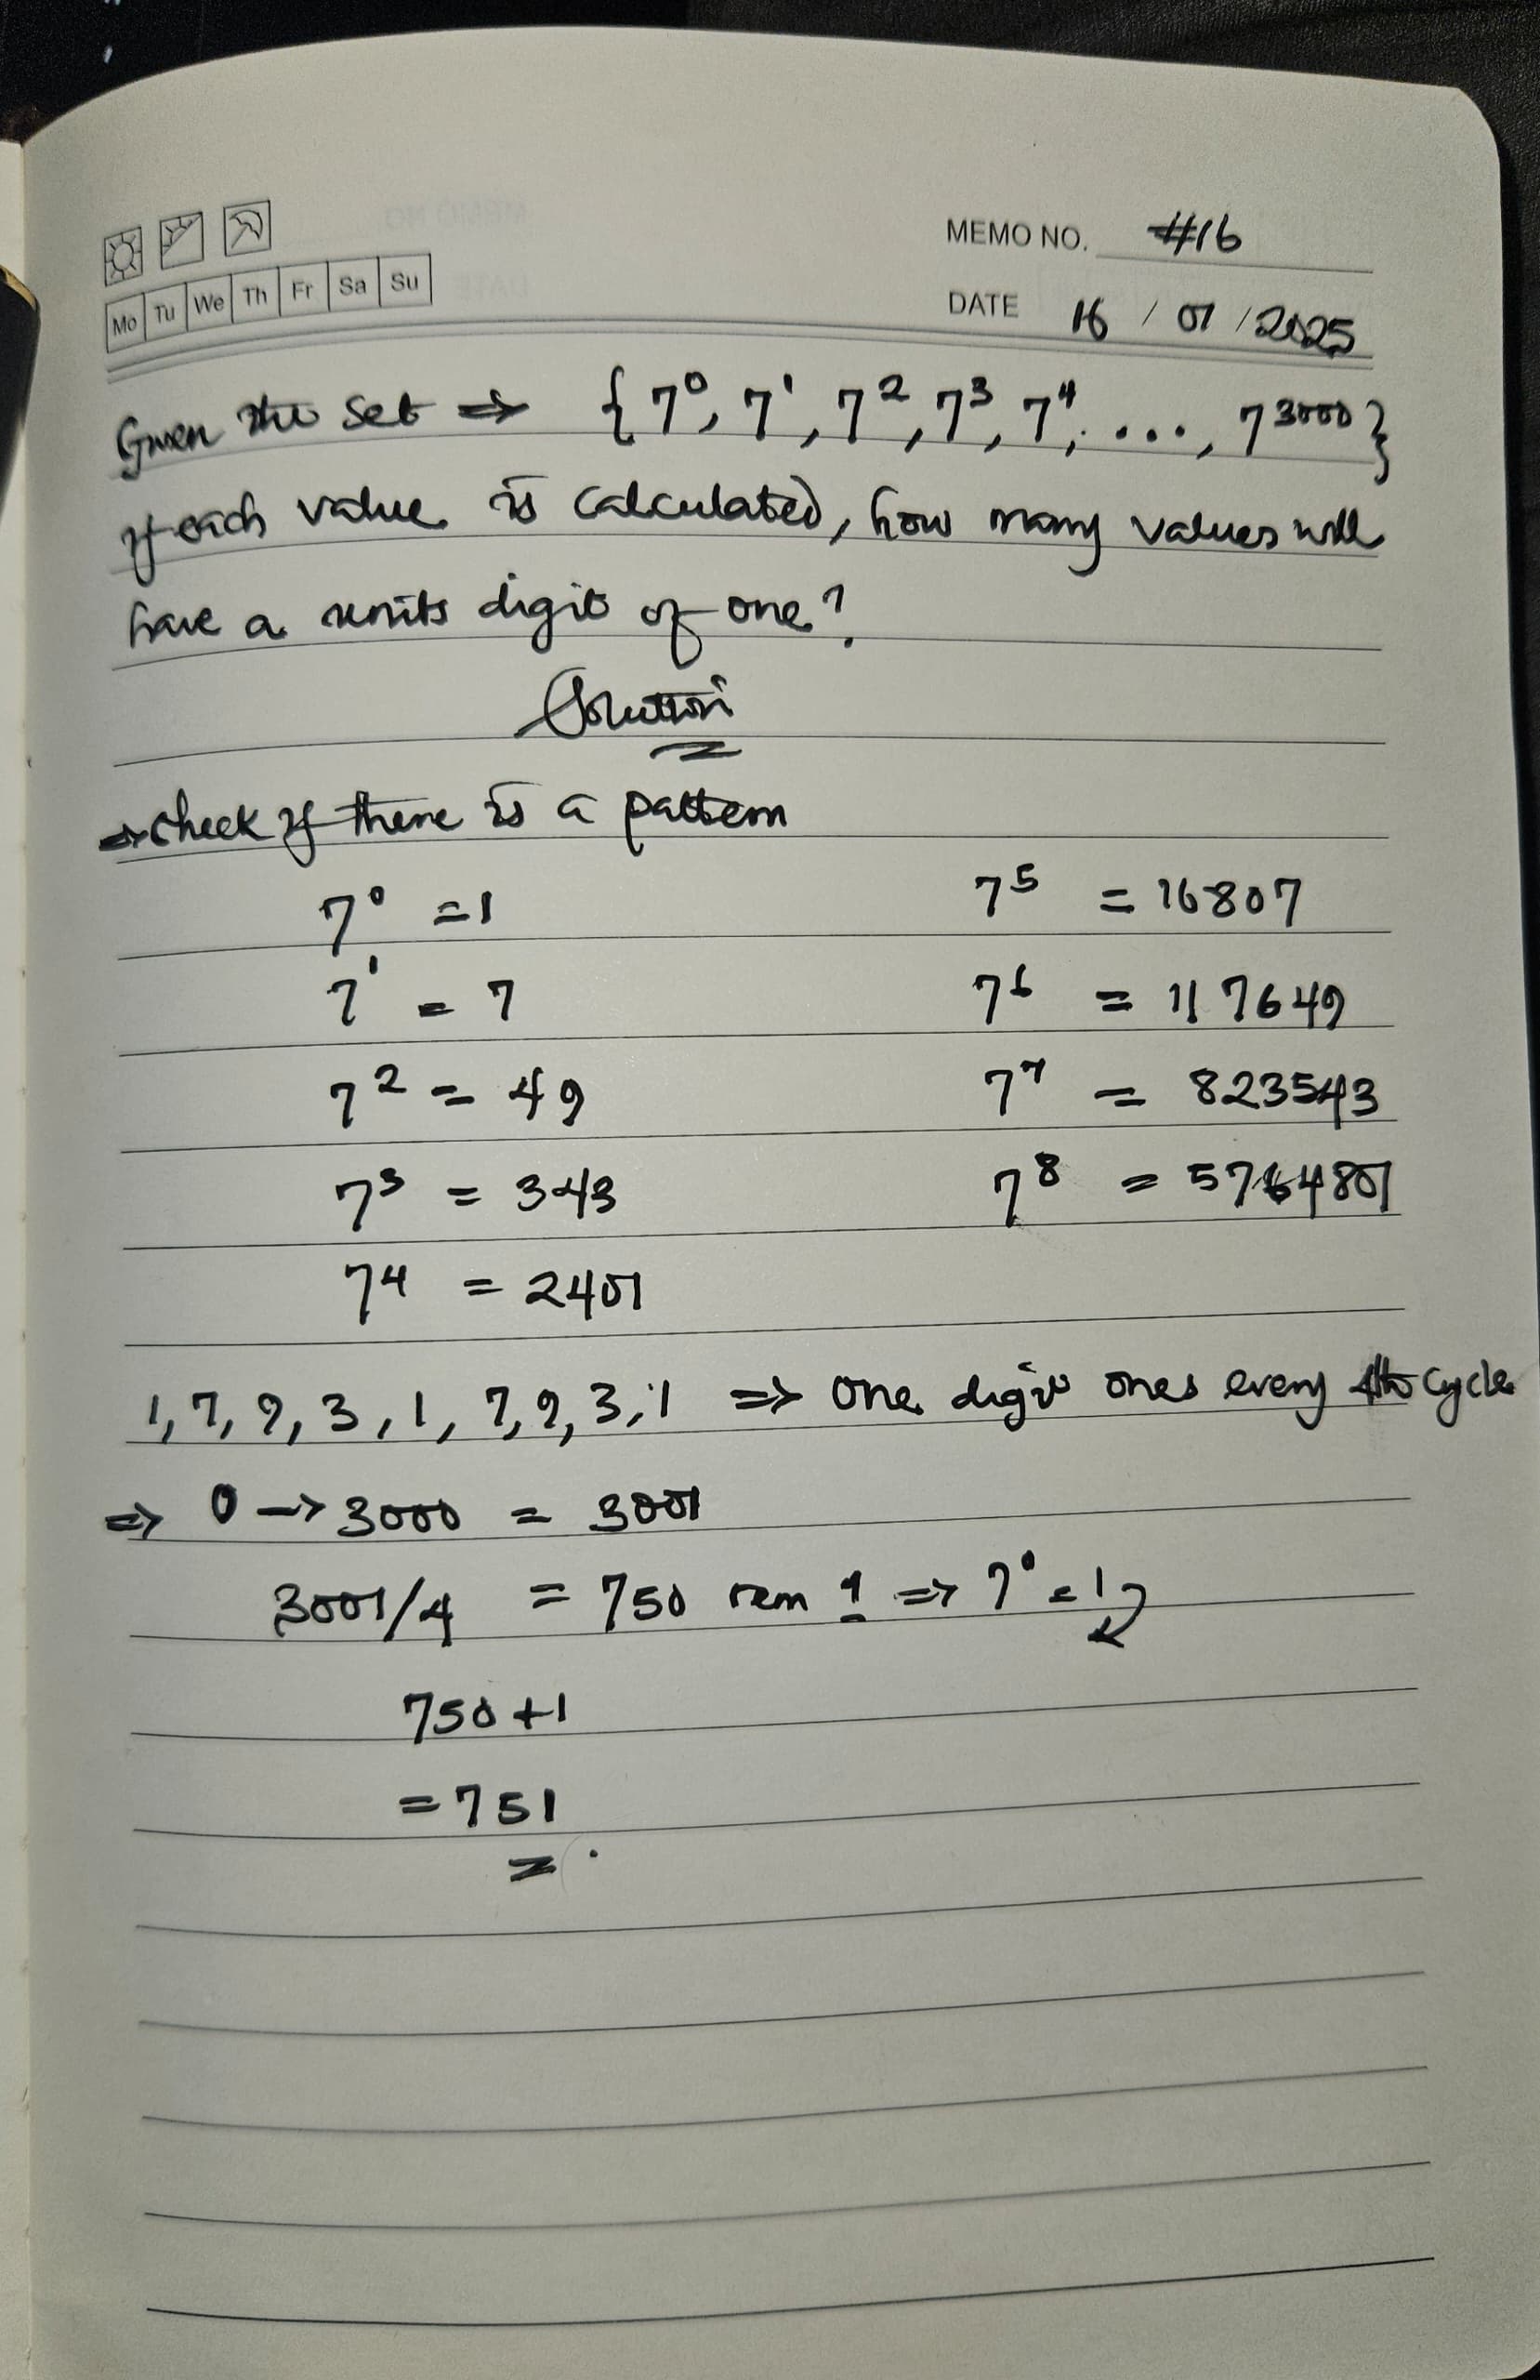 MEMO NO. #16
Mo Tu We Th Fr Sa Su
DATE 16 / 01 / 2025
Given the set ⇒ {7⁰, 7¹, 7², 7³, 7⁴, ..., 7³⁰⁰⁰}
If each value is calculated, how many values will
have a units digit of one?
Solution
⇒ check if there is a pattern
7⁰ = 1 7⁵ = 16807
7¹ = 7 7⁶ = 117649
7² = 49 7⁷ = 823543
7³ = 343 7⁸ = 5764801
7⁴ = 2401
1, 7, 9, 3, 1, 7, 9, 3, 1 ⇒ One digit ones every 4th cycle
⇒ 0 → 3000 = 3001
3001/4 = 750 rem 1 ⇒ 7⁰ = 1
750 + 1
= 751